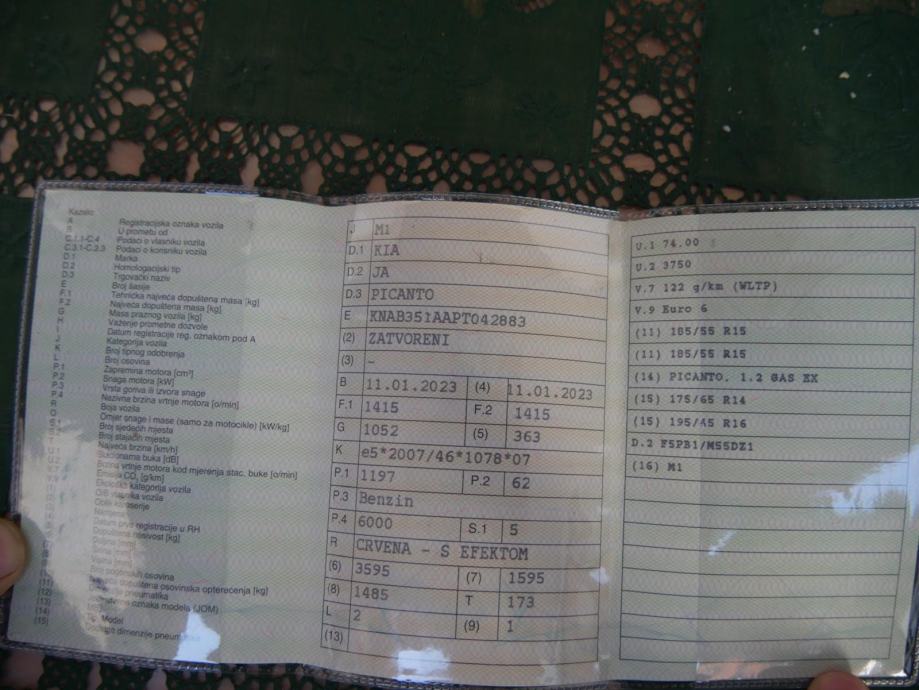 Kazalo:
A Registracijska oznaka vozila
B U prometu od
C.1.1-C.4 Podaci o vlasniku vozila
C.3.1-C.3.3 Podaci o korisniku vozila
D.1 Marka
D.2 Homologacijski tip
D.3 Trgovački naziv
E Broj šasije
F.1 Tehnička najveća dopuštena masa [kg]
F.2 Najveća dopuštena masa [kg]
G Masa praznog vozila [kg]
H Važenje prometne dozvole
I Datum registracije reg. oznakom pod A
J Kategorija vozila
K Broj tipnog odobrenja
L Broj osovina
P.1 Zapremina motora [cm³]
P.2 Snaga motora [kW]
P.3 Vrsta goriva ili izvora snage
P.4 Nazivna brzina vrtnje motora [o/min]
R Boja vozila
Omjer snage i mase (samo za motocikle) [kW/kg]
Broj sjedećih mjesta
Broj stajaćih mjesta
Najveća brzina [km/h]
buka [dB]
Brzina vrtnje motora kod mjerenja stac. buke [o/min]
Emisija CO₂ [g/km]
Ekološka kategorija vozila
vozila
Datum prve registracije u RH
nosivost [kg]
osovina
dopuštena osovinska opterećenja [kg]
oznaka modela (JOM)
Model
dimenzije
J M1
D.1 KIA
D.2 JA
D.3 PICANTO
E KNAB351AAPT042883
(2) ZATVORENI
(3) -
B 11.01.2023 (4) 11.01.2023
F.1 1415 F.2 1415
G 1052 (5) 363
K e5*2007/46*1078*07
P.1 1197 P.2 62
P.3 Benzin
P.4 6000 S.1 5
R CRVENA - S EFEKTOM
(6) 3595 (7) 1595
(8) 1485 T 173
L 2 (9) 1
(13)
U.1 74.00
U.2 3750
V.7 122 g/km (WLTP)
V.9 Euro 6
(11) 185/55 R15
(11) 185/55 R15
(14) PICANTO. 1.2 GAS EX
(15) 175/65 R14
(15) 195/45 R16
D.2 F5PB1/M55DZ1
(16) M1